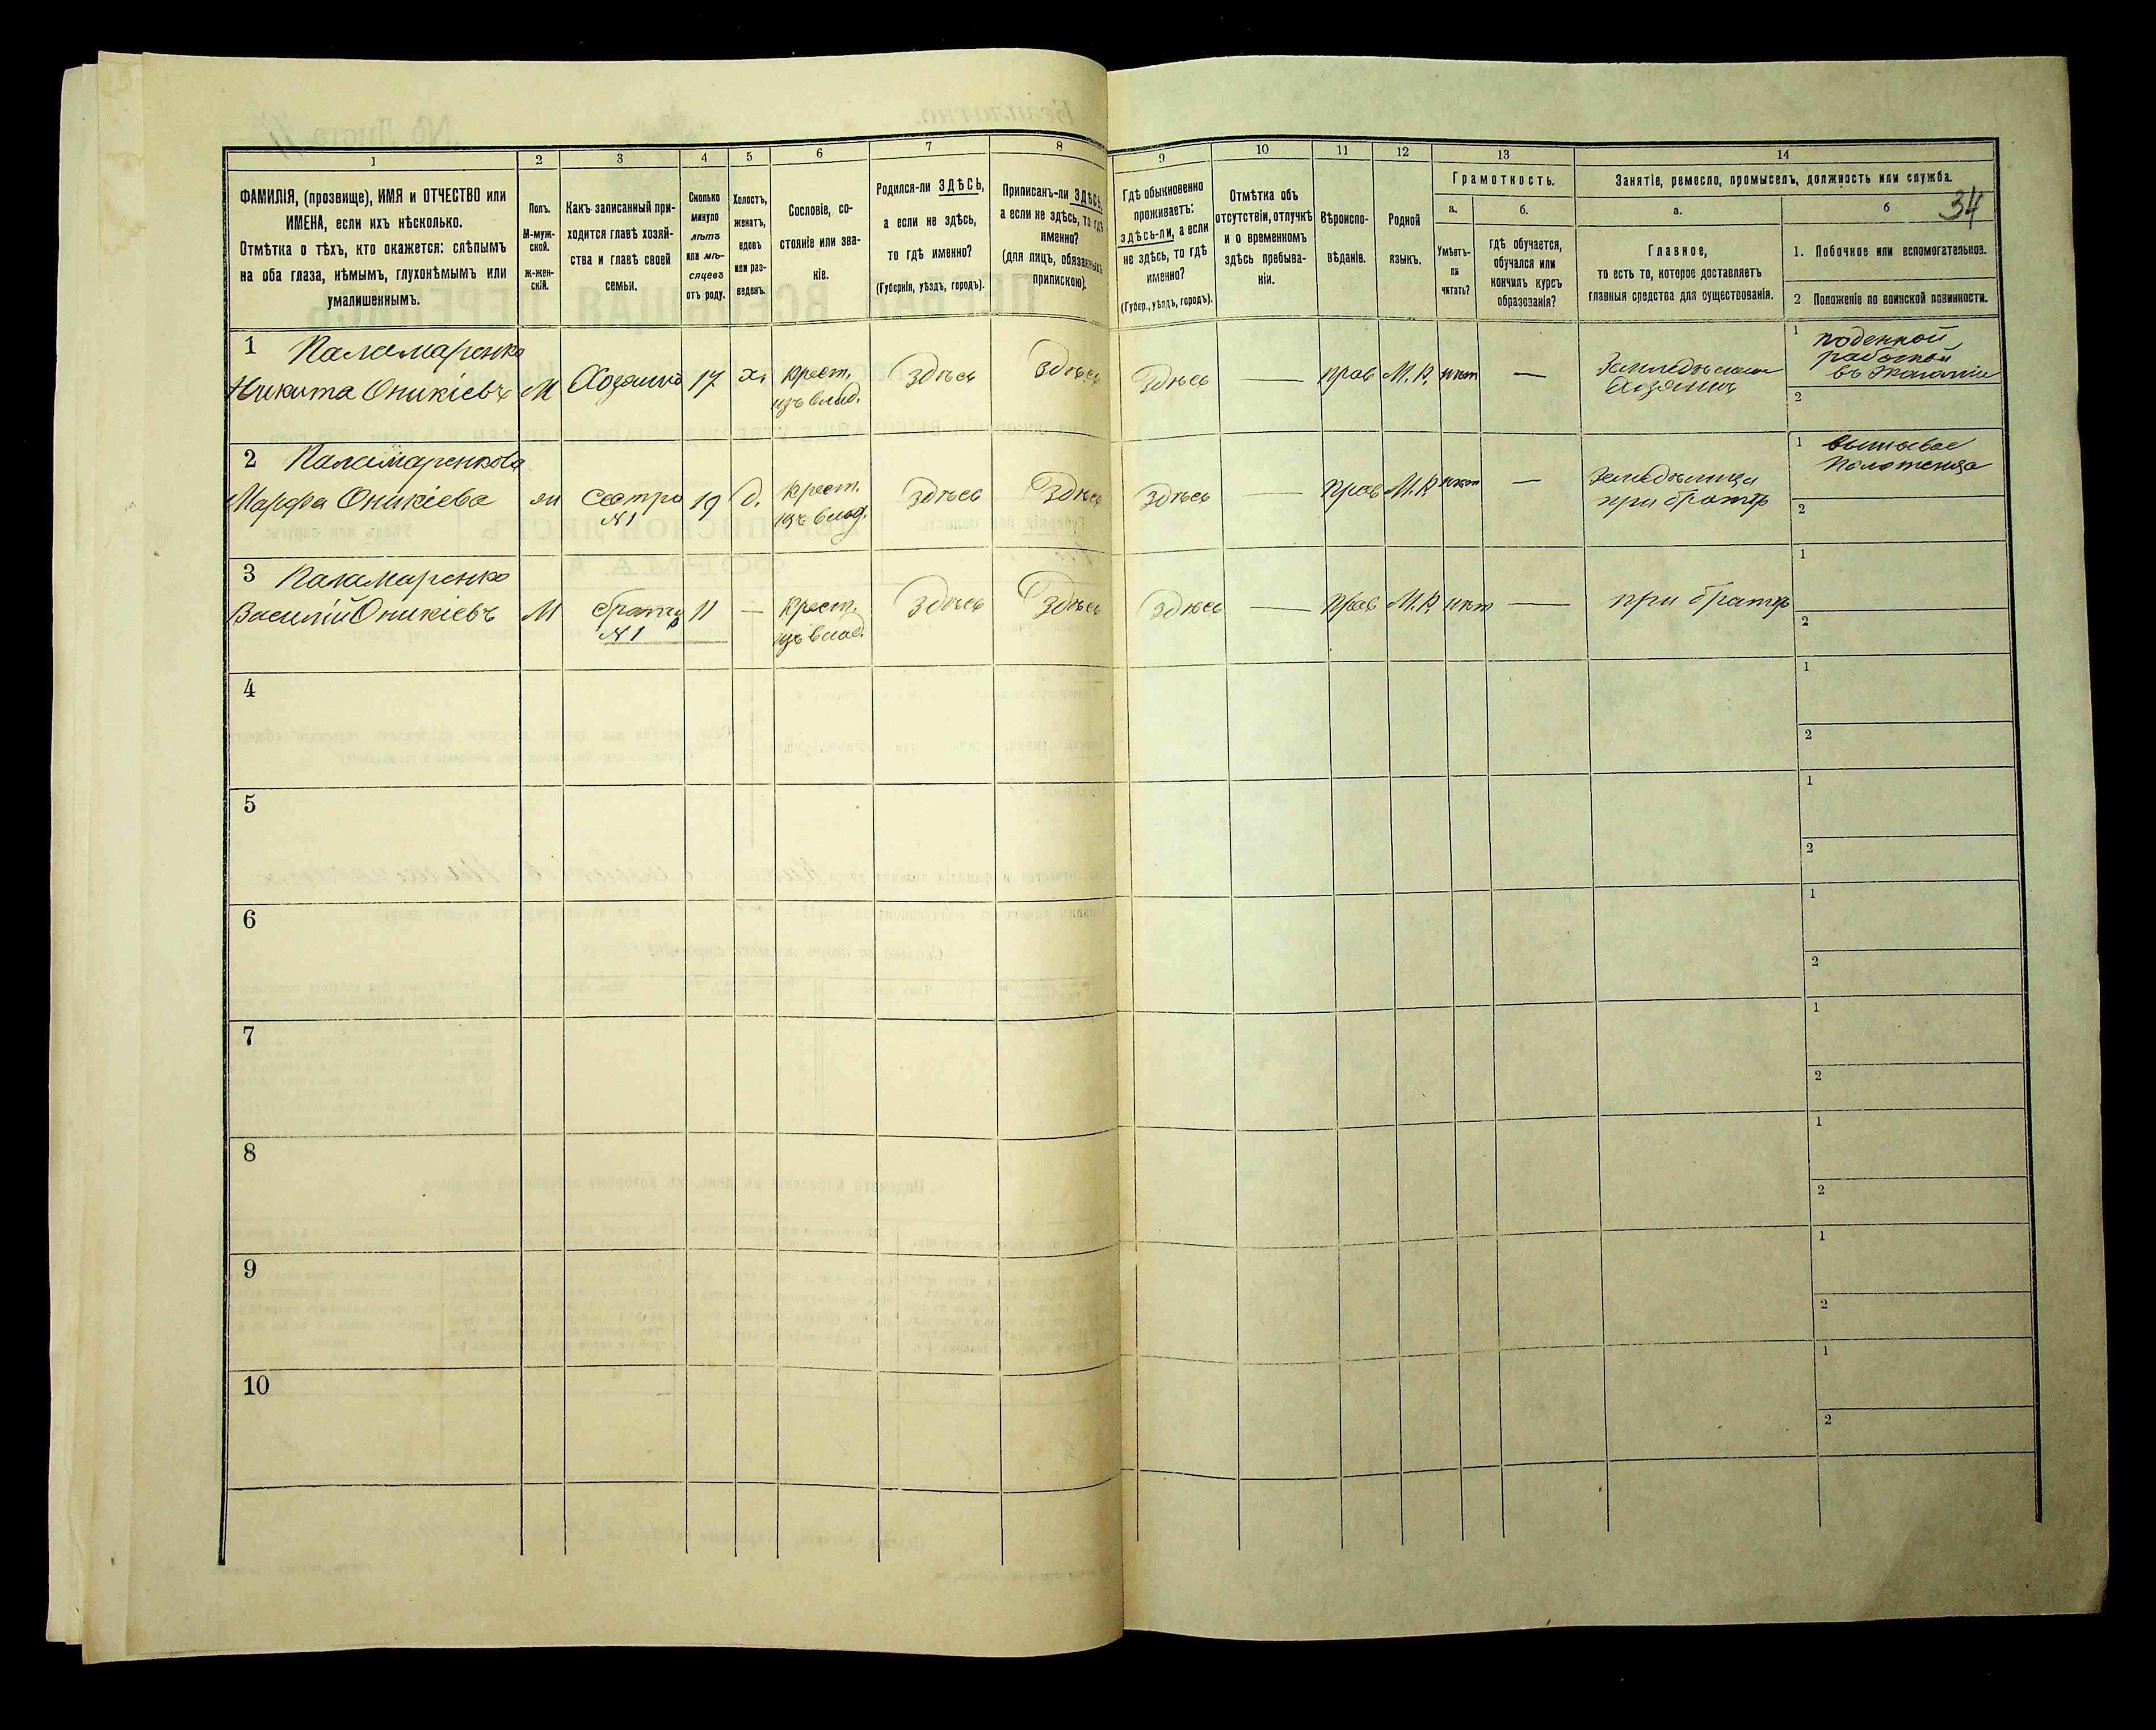 1 2 3 4 5 6 7 8 9 10 11 12 13 14
ФАМИЛІЯ, (прозвище), ИМЯ и ОТЧЕСТВО или
ИМЕНА, если ихъ нѣсколько.
Отмѣтка о тѣхъ, кто окажется: слѣпымъ
на оба глаза, нѣмымъ, глухонѣмымъ или
умалишеннымъ.
Полъ.
М-муж-
ской.
ж-жен-
скій.
Какъ записанный при-
ходится главѣ хозяй-
ства и главѣ своей
семьи.
Сколько
минуло
лѣтъ
или мѣ-
сяцевъ
отъ роду.
Холостъ,
женатъ,
вдовъ
или раз-
веденъ.
Сословіе, со-
стояніе или зва-
ніе.
Родился-ли ЗДѢСЬ,
а если не здѣсь,
то гдѣ именно?
(Губернія, уѣздъ, городъ).
Приписанъ-ли ЗДѢСЬ,
а если не здѣсь, то гдѣ
именно?
(для лицъ, обязанныхъ
припискою).
Гдѣ обыкновенно
проживаетъ:
здѣсь-ли, а если
не здѣсь, то гдѣ
именно?
(Губер., уѣздъ, городъ).
Отмѣтка объ
отсутствіи, отлучкѣ
и о временномъ
здѣсь пребыва-
ніи.
Вѣроиспо-
вѣданіе.
Родной
языкъ.
Грамотность.
а.
Умѣетъ-
ли
читать?
б.
гдѣ обучается,
обучался или
кончилъ курсъ
образованія?
Занятіе, ремесло, промыселъ, должность или служба.
34
а.
Главное,
то есть то, которое доставляетъ
главныя средства для существованія.
б
1. Побочное или вспомогательное.
2 Положеніе по воинской повинности.
1 Паламаренко
Никита Оникіевъ М Хозяинъ 17 х. крест. Здѣсь Здѣсь Здѣсь — прав М.Р. нѣт —
изъ влад.
Хозяинъ
1 поденной
работой
въ
2
2 Паламаренкова
Марфа Оникіева сестра 19 д. крест. Здѣсь Здѣсь Здѣсь — Прав М.Р нѣт —
N1 изъ влад.
Земледѣлица
при братѣ
1
2
3 Паламаренко
Василій Оникіевъ М братъ 11 — крест. Здѣсь Здѣсь Здѣсь — Прав М.Р нѣт — при братѣ
N1 изъ влад.
1
2
4
1
2
5
1
2
6
1
2
7
1
2
8
1
2
9
1
2
10
1
2